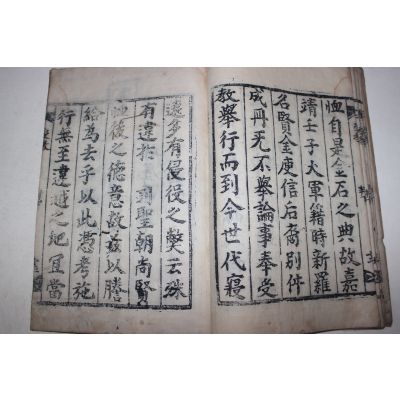 恤自是金石之典故嘉
靖壬子大軍籍時新羅
名賢金庾信后裔別件
成冊旡不擧論事奉受
教擧行而到今世代寢
遠多有侵役之弊云殊
有違於 列聖朝尙賢
之德意故玆以謄
給爲去乎以此憑考施
行無至違越之地宜當